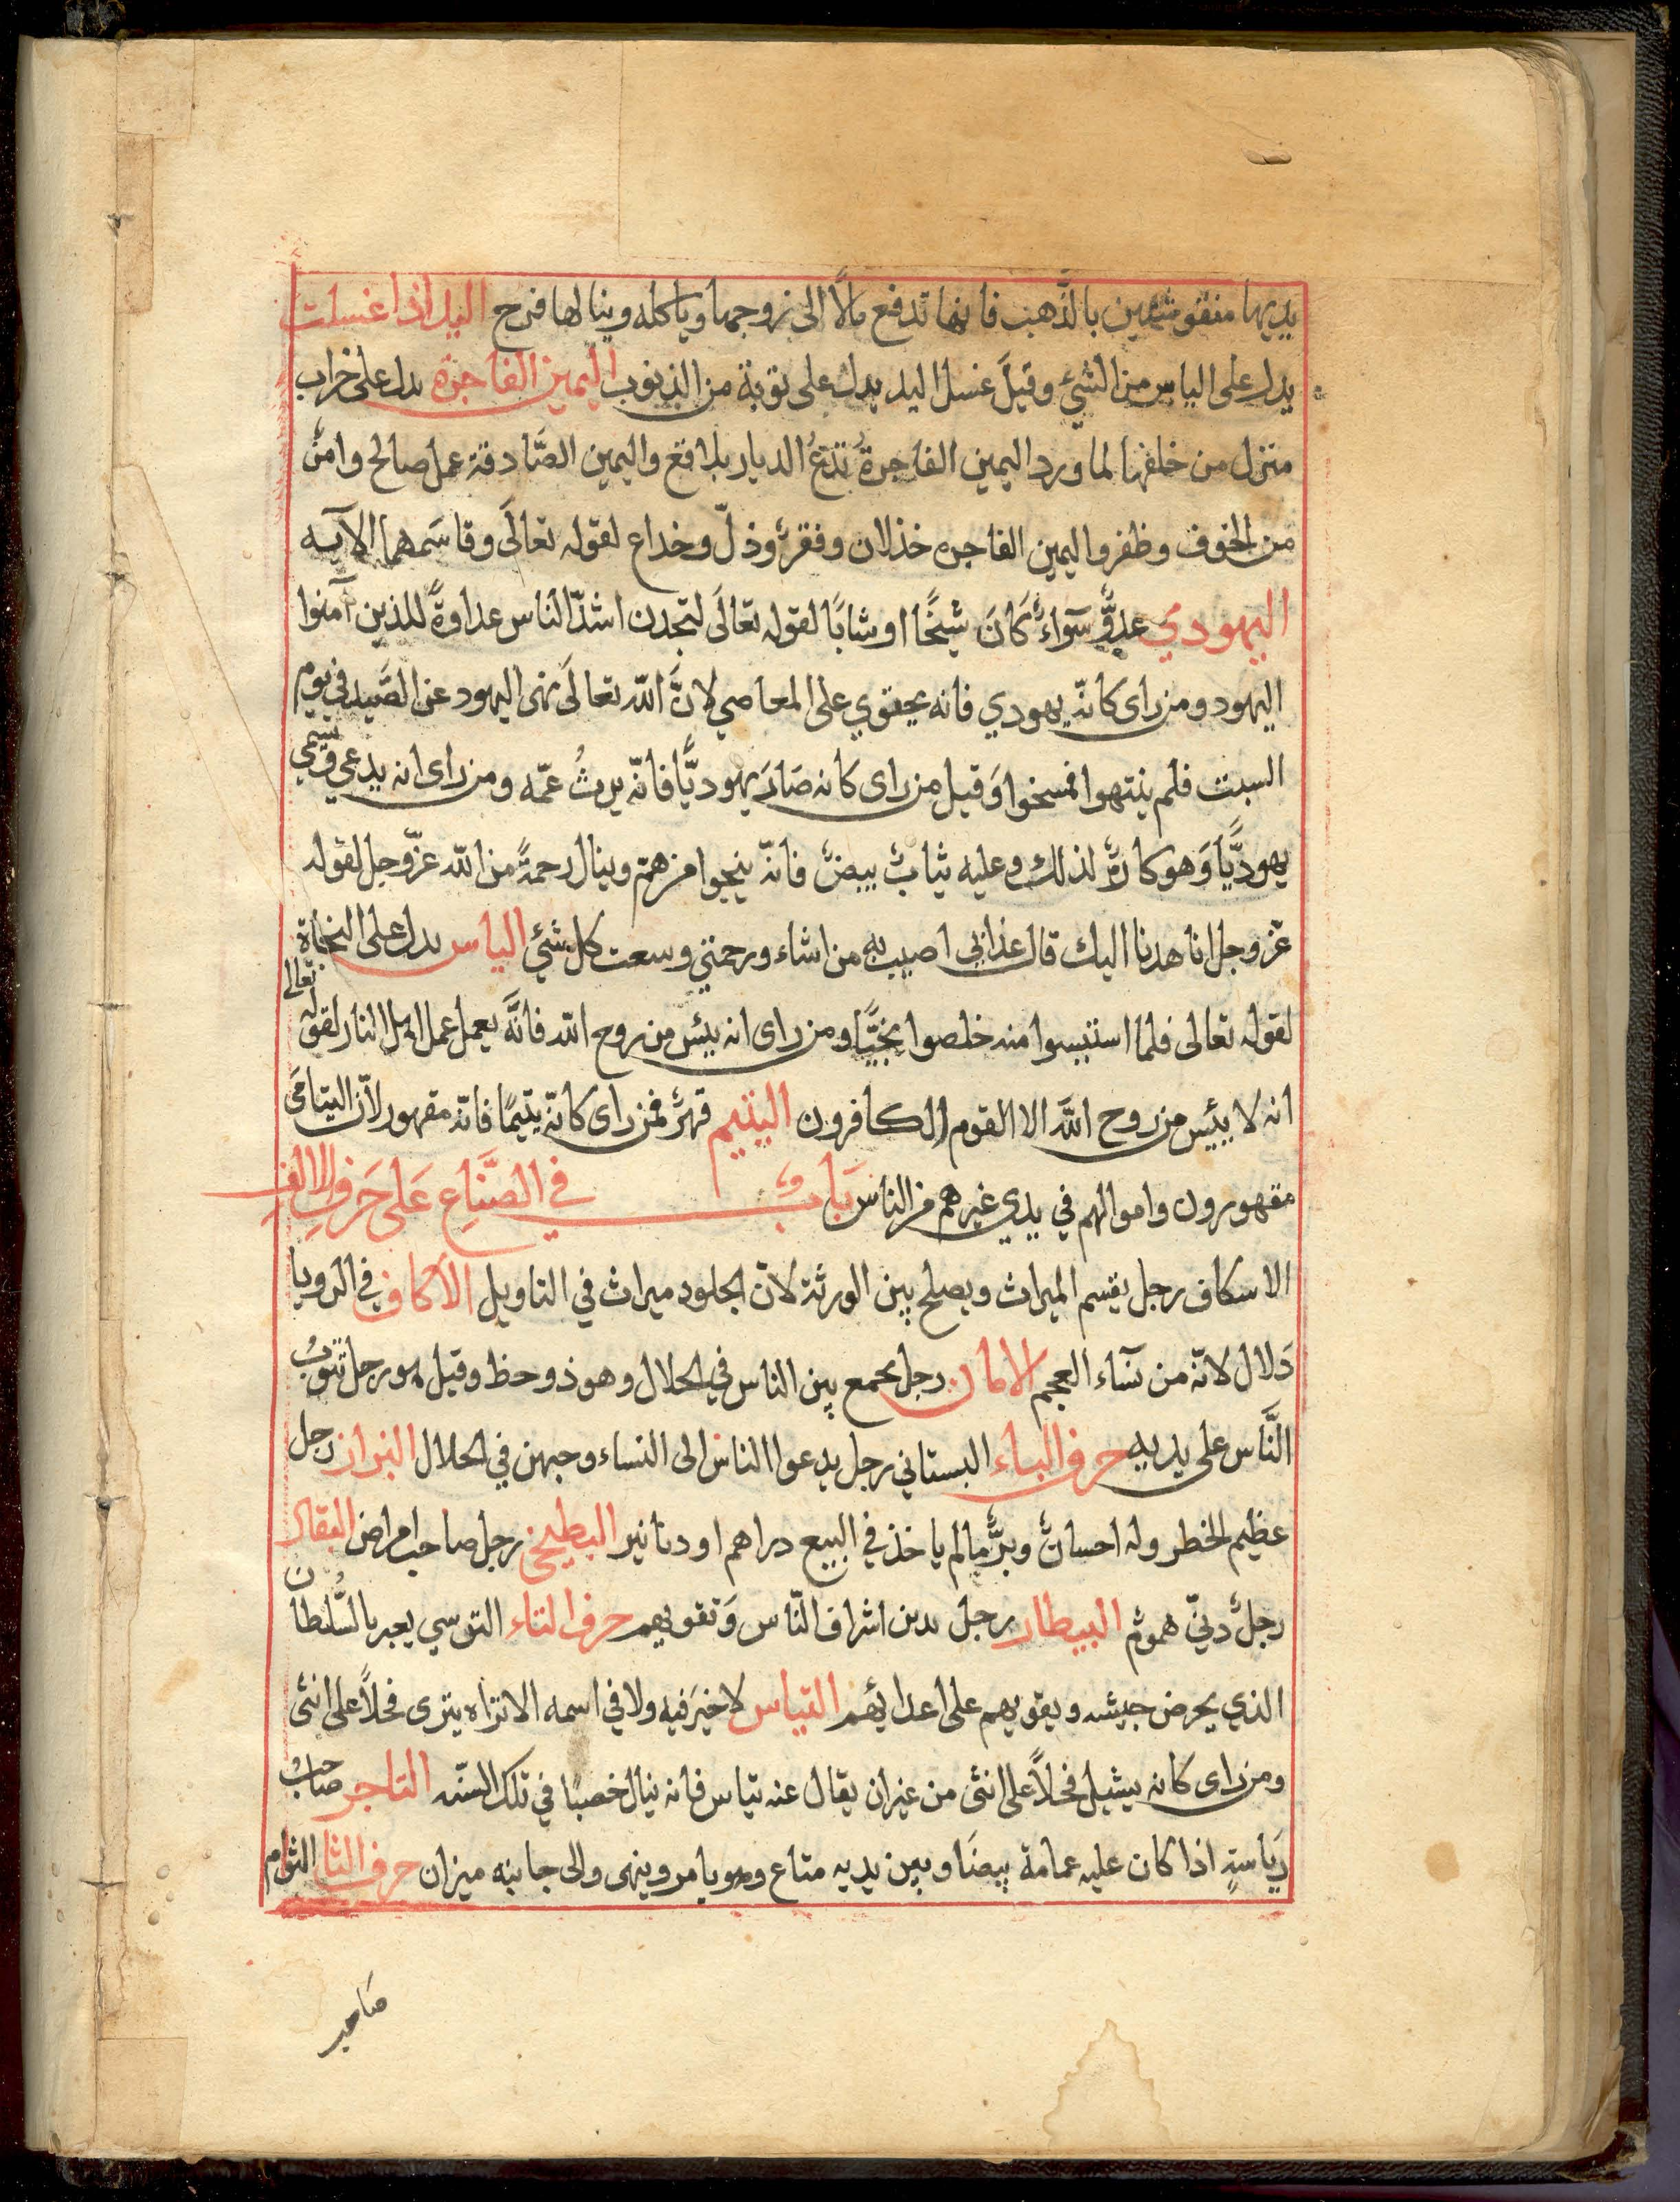 يديها منقوشتين بالذَّهب فانها تدفع مالاً الى زوجها وياكله وينالها فرح اليد اذا غسلت
يدل على الياس من الشيء وقيل غسل اليد يدل على توبة من الذنوب اليمين الفاجرة يدل على خراب
منزل من خلفها لما ورد اليمين الفاجرةُ تدَعُ الديار بلاقع واليمين الصَّادقة عمل صالح وامنٌ
من الخوف وظفر واليمين الفاجره خذلان وفقرٌ وذلّ وخداع لقوله تعالَى وقاسَمهما الآيه
اليهودي عدوٌّ سَوآءٌ كَانَ شيخًا او شابًا لقوله تعالَى لتجدن اشدّ الناس عداوةً للذين آمنوا
اليهود ومن راى كانّه يهودي فانه يقوي على المعاصي لانَّ الله تعالَى نهى اليهود عن الصَّيد في يوم
السبت فلم ينتهوا فمسخوا وَقيل من راى كانه صَارَ يهوديًّا فانّه يرثُ عمّه ومن راى انه يدعى ويسمى
يهوديًّا وَهو كارهٌ لذلك وعليه ثيابٌ بيضٌ فانّه ينجوا من همّه وينال رحمةً من الله عزّ وجل لقوله
عزّ وجل انا هدنا اليك قال عذابى اصيب به من اشاء ورحمتي وسعت كل شئي الياس يدل على النجاة
لقوله تعالى فلما استيئسوا منه خلصوا نجيًّا ومن راى انه يئس من روح الله فانَّه يعمل عمل اهل النار لقوله تعالى
انه لا ييئس من روح اللَّه الا القوم الكافرون اليتيم قهرٌ فمن راى كانّه يتيمًا فانّه مقهور لانّ اليتامَى
مقهورون واموالهم في يدي غيرهم من الناس بَابٌ في الصنَّاعِ عَلى حَرفِ الالفِ
الاسكاف رجل يقسم الميراث ويصلح بين الورثة لانّ الجلود ميراث في التاويل الاكاف في الرويا
دَلال لانّه من نسَآء العجم رجل يجمع بين الناس في الحلال وهو ذو حظ وقيل هو رجل تتوبُ
النَّاس على يديه حرف الباء البستاني رجل يدعوا الناس الى النساء وحبهن في الحلال البزاز رجل
عظيم الخطر وله احسانٌ وبرٌّ ما لم ياخذ في البيع دراهم او دنانير البطيخي رجل صاحب امراض البقال
رجلٌ دنيّ همومٌ البيطار رجل يدين اشراف النّاس وَتقويهم حرف التاء التوسي يعبر بالسُّلطان
الذي يحرض جيشه ويقويهم على اعدائهم التياس لا خيَر فيه ولا في اسمه الا تزاه ينزى فحلاً على انثى
ومن راى كانه يشيل فحلاً على انثى من غير ان يقال عنه تياس فانه ينال خصبًا في تلك السنّه التاجر صَاحبُ
رَياسةٍ اذا كان عليه عمامة بيضَا وبين يديه متاع وهو يامر وينهى والى جانبه ميزان حرف الثا الثوام
صاحب